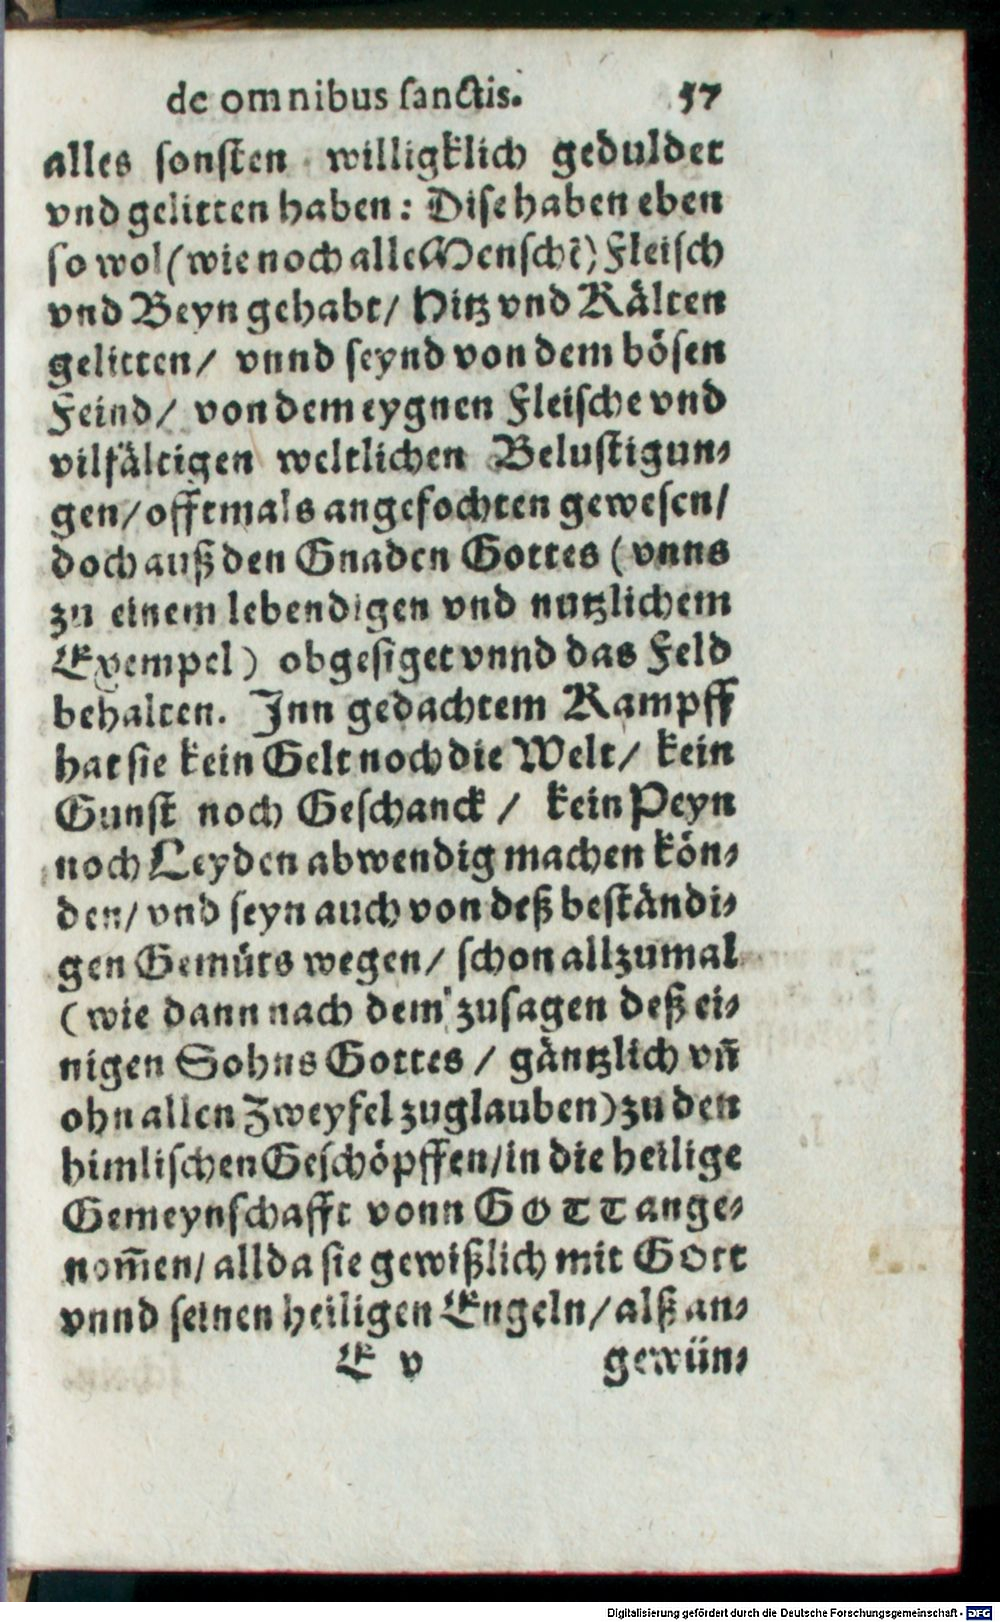 de omnibus sanctis. 57
alles sonsten willigklich geduldet
vnd gelitten haben: Dise haben eben
so wol (wie noch alle Menschē) Fleisch
vnd Beyn gehabt/ Hitz vnd Kälten
gelitten/ vnnd seynd von dem bösen
Feind/ von dem eygnen Fleische vnd
vilfältigen weltlichen Belustigun-
gen/ offtmals angefochten gewesen/
doch auß den Gnaden Gottes (vnns
zu einem lebendigen vnd nutzlichem
Exempel) obgesiget vnnd das Feld
behalten. Inn gedachtem Kampff
hat sie kein Gelt noch die Welt/ kein
Gunst noch Geschanck / kein Peyn
noch Leyden abwendig machen kön-
den/ vnd seyn auch von deß beständi-
gen Gemüts wegen/ schon allzumal
(wie dann nach dem zusagen deß ei-
nigen Sohns Gottes / gäntzlich vñ
ohn allen Zweyfel zuglauben) zu den
himlischen Geschöpffen/ in die heilige
Gemeynschafft vonn GOTT ange-
nom̃en/ allda sie gewißlich mit Gott
vnnd seinen heiligen Engeln/ alß an-
E v gewün-
Digitalisierung gefördert durch die Deutsche Forschungsgemeinschaft - DFG